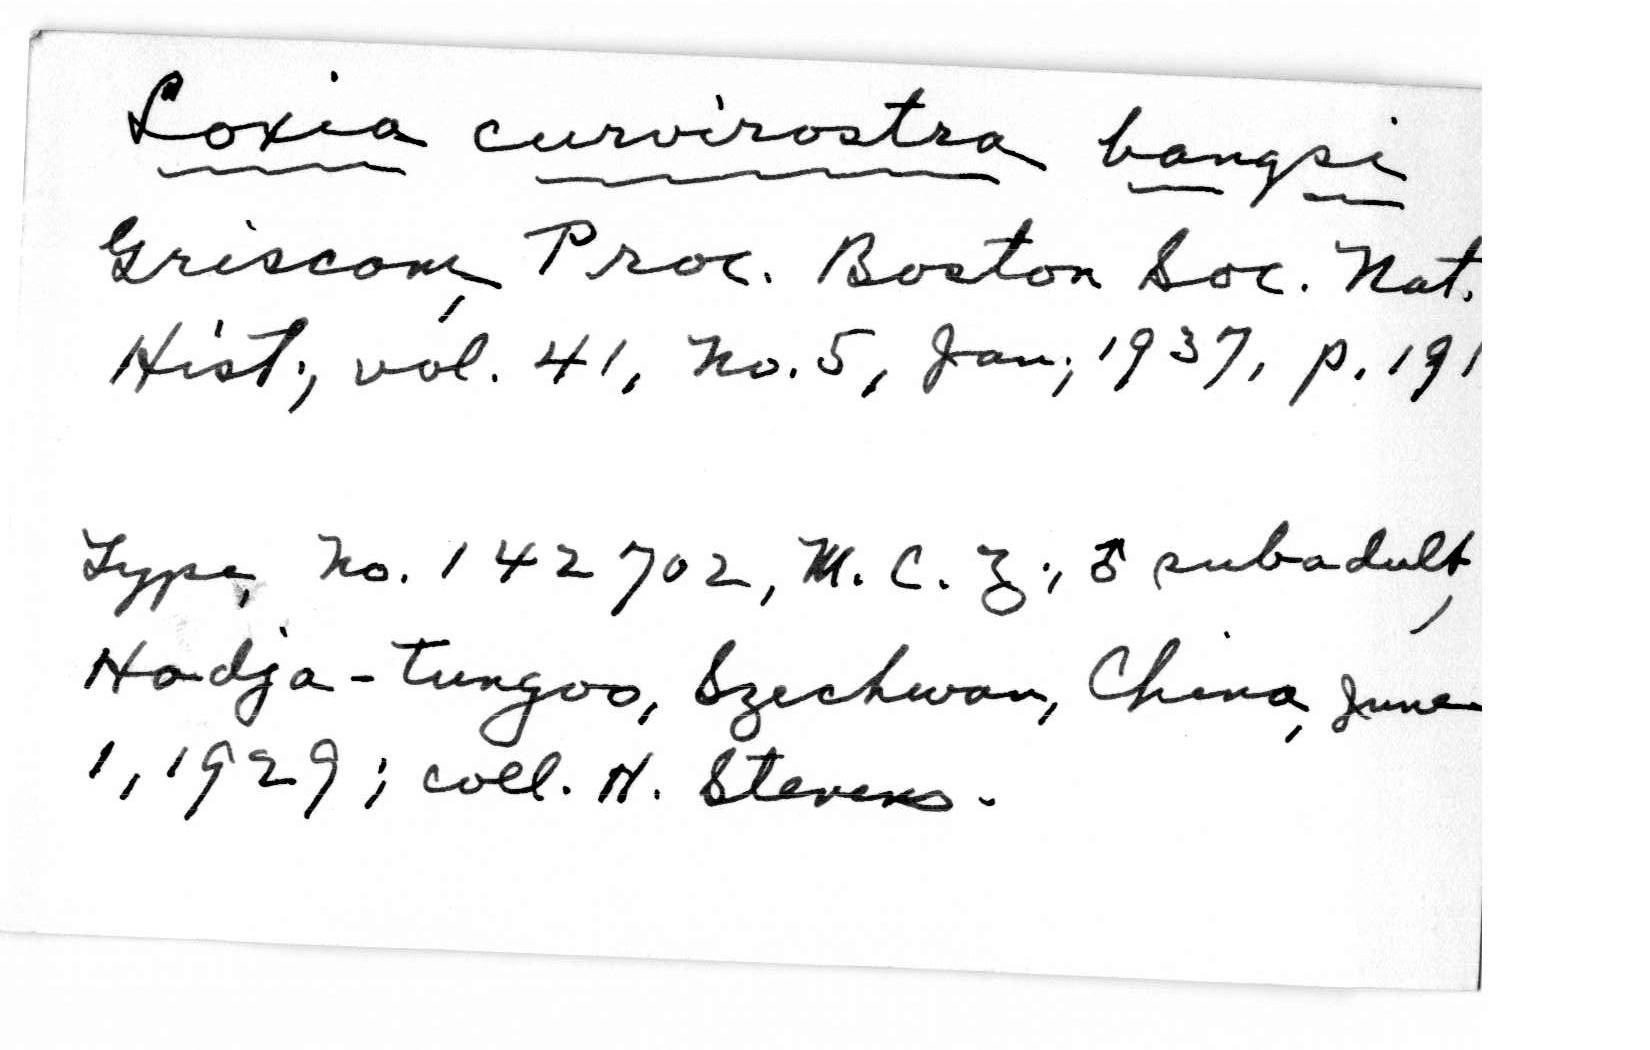 Loxia curvirostra bangsi
Griscom, Proc. Boston Soc. Nat.
Hist., vol. 41, No. 5, Jan., 1937, p. 191
Type, No. 142702, M. C. Z., ♂ subadult,
Hodja-tungoo, Szechwan, China, June
1, 1929; coll. H. Stevens.